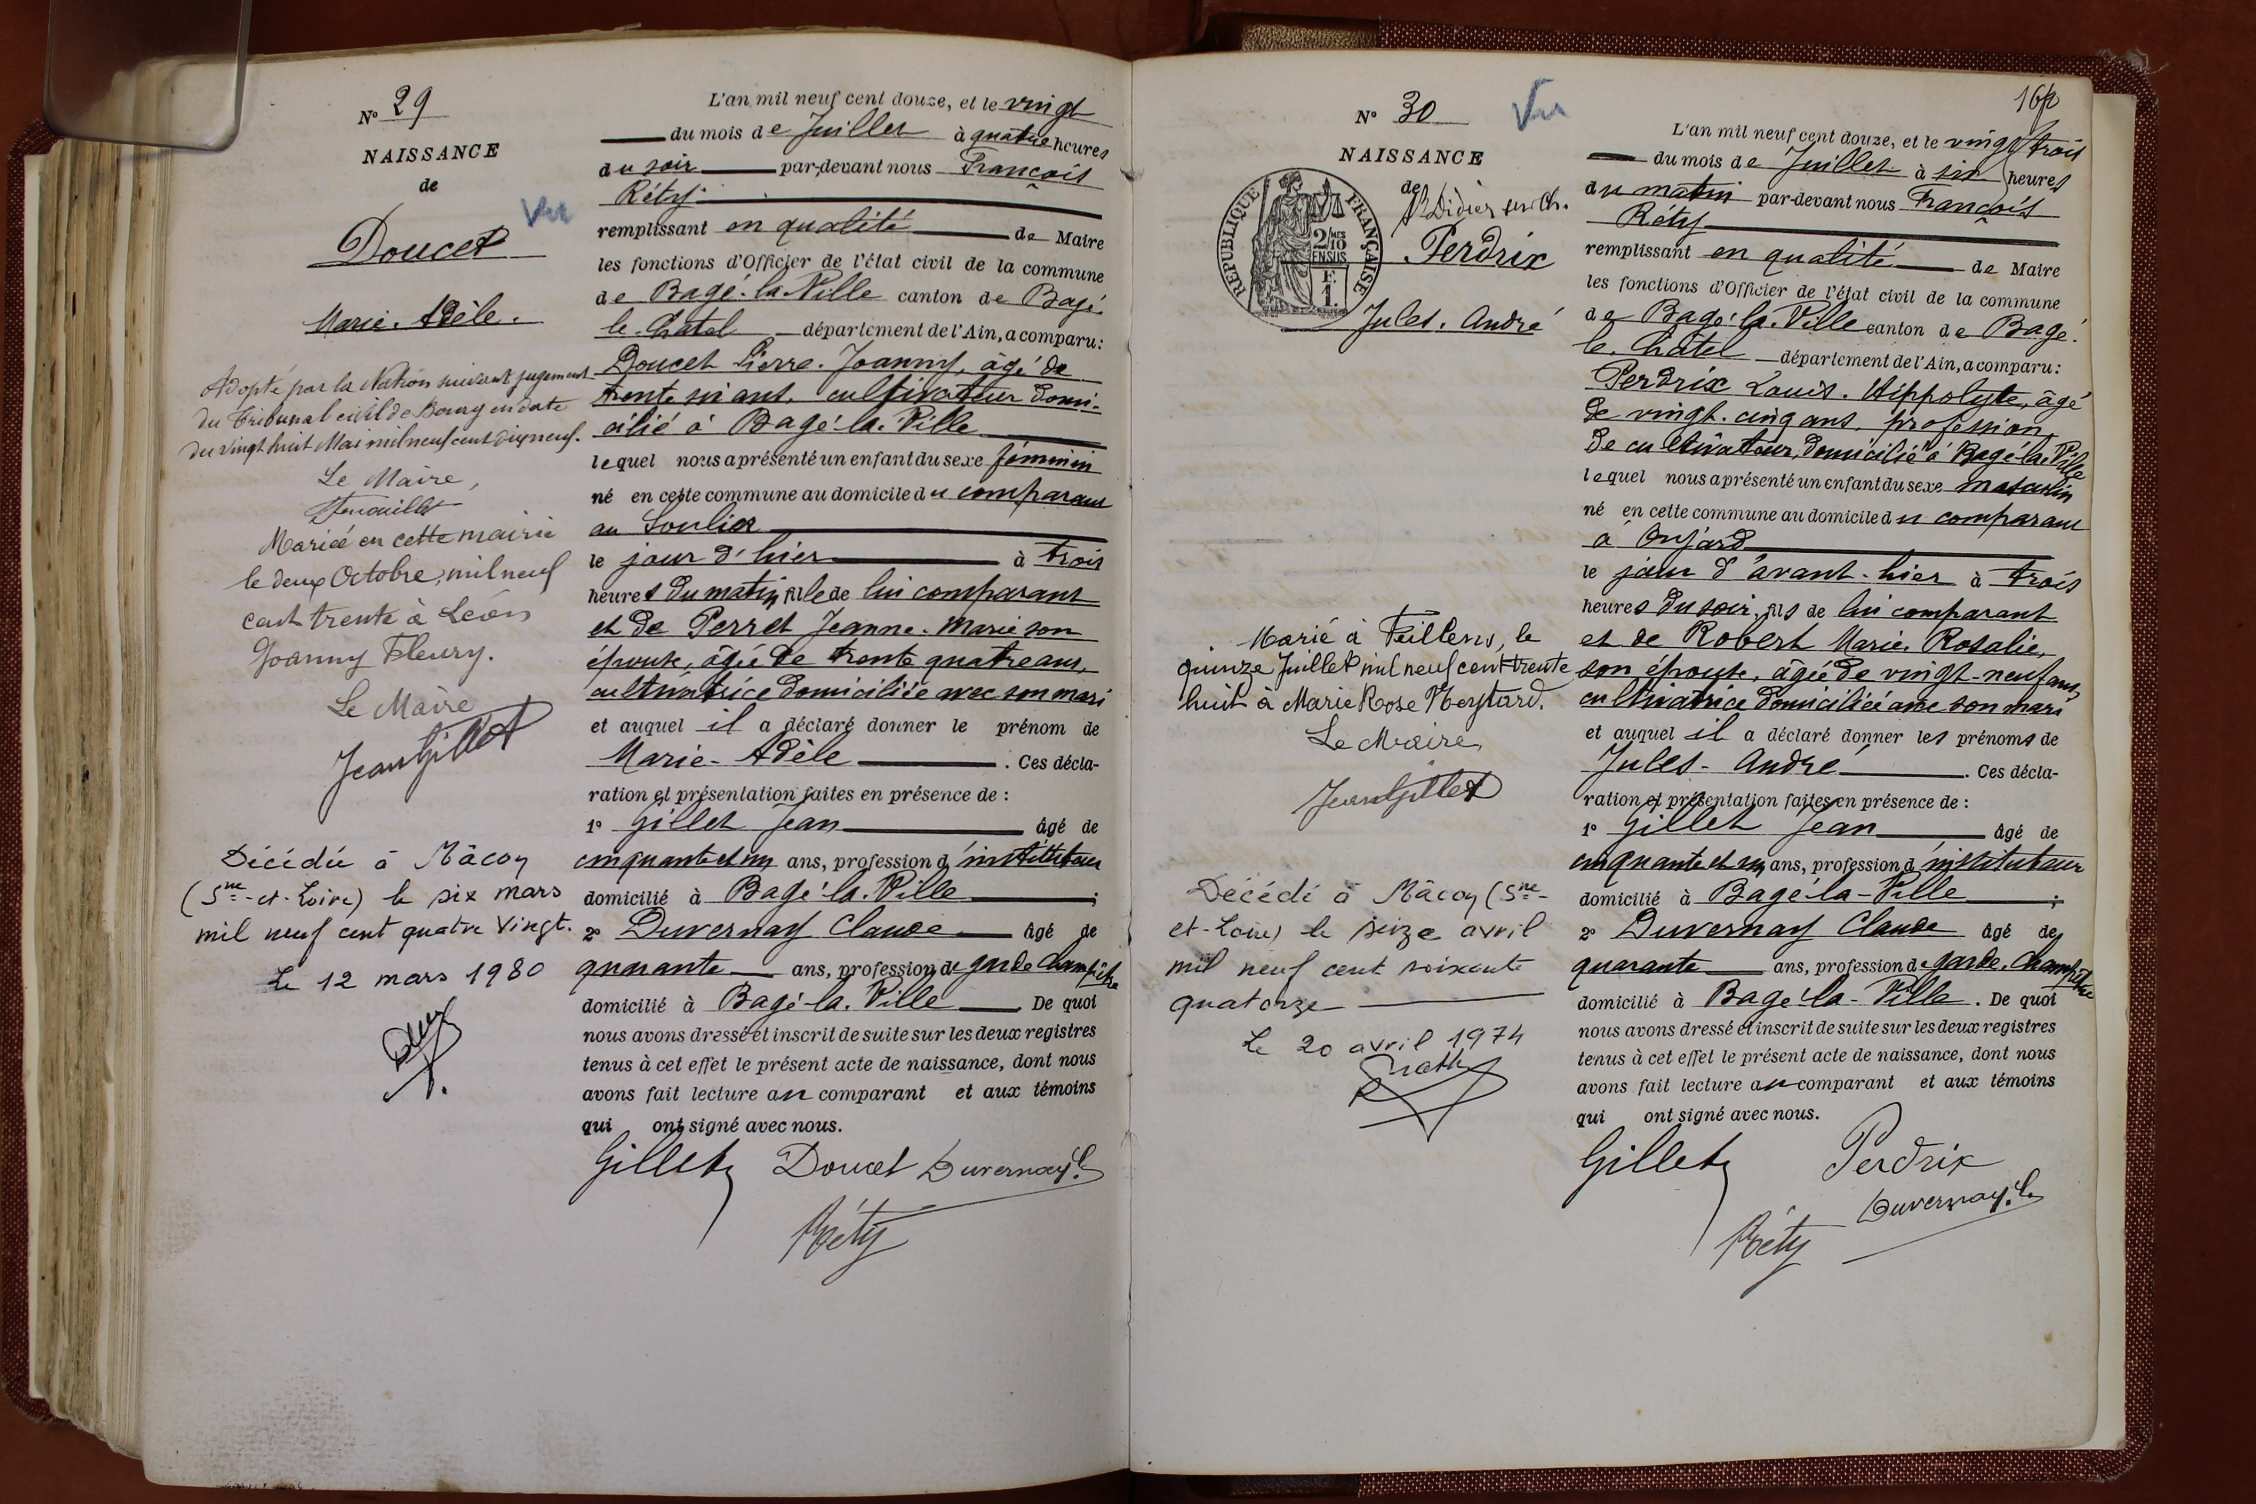 Nº 29
NAISSANCE
de
Vu
Doucet
Marie. Adèle.
Adopté par la Nation suivant jugement
du Tribunal civil de Bourg en date
du vingt huit Mai mil neuf cent dix neuf.
Le Maire,
Mariée en cette mairie
le deux Octobre, mil neuf
cent trente à Léon
Joanny Fleury.
Le Maire
Jean Gillet
Décédée à Mâcon
(Sne-et-Loire) le six mars
mil neuf cent quatre vingt.
Le 12 mars 1980
L'an mil neuf cent douze, et le vingt
du mois de Juillet à quatre heures
du soir par-devant nous François
Réty
remplissant en qualité de Maire
les fonctions d'Officier de l'état civil de la commune
de Bagé-la-Ville canton de Bagé.
le-Châtel département de l'Ain, a comparu:
Doucet Pierre. Joanny, âgé de
trente six ans, cultivateur domi-
cilié à Bagé-la-Ville
lequel nous a présenté un enfant du sexe féminin
né en cette commune au domicile du comparant
au Soulier
le jour d'hier à trois
heures du matin, fille de lui comparant
et de Perret Jeanne. Marie son
épouse, âgée de trente quatre ans,
cultivatrice domiciliée avec son mari
et auquel il a déclaré donner le prénom de
Marie-Adèle . Ces décla-
ration et présentation faites en présence de :
1º Gillet Jean âgé de
cinquante et un ans, profession d'instituteur
domicilié à Bagé-la-Ville ;
2º Duvernay Claude âgé de
quarante ans, profession de garde champêtre
domicilié à Bagé-la-Ville De quoi
nous avons dressé et inscrit de suite sur les deux registres
tenus à cet effet le présent acte de naissance, dont nous
avons fait lecture au comparant et aux témoins
qui ont signé avec nous.
Gillet Doucet Duvernay C.
Réty
162
Nº 30
Vu
NAISSANCE
de
St Didier sur Ch.
RÉPUBLIQUE FRANÇAISE
2/MES
10
EN SUS
F.
1.
Perdrix
Jules. André
Marié à Feillens, le
quinze Juillet mil neuf cent trente
huit à Marie Rose
Le Maire,
Jean Gillet
Décédé à Mâcon (Sne-
et-Loire) le seize avril
mil neuf cent soixante
quatorze
Le 20 avril 1974
L'an mil neuf cent douze, et le vingt trois
du mois de Juillet à six heures
du matin par-devant nous François
Réty
remplissant en qualité de Maire
les fonctions d'Officier de l'état civil de la commune
de Bagé-la-Ville canton de Bagé.
le-Châtel département de l'Ain, a comparu:
Perdrix Louis. Hippolyte, âgé
de vingt-cinq ans, profession
de cultivateur, domicilié à Bagé-la-Ville
lequel nous a présenté un enfant du sexe masculin
né en cette commune au domicile du comparant
à Onjard
le jour d'avant-hier à trois
heures du soir, fils de lui comparant
et de Robert Marie. Rosalie,
son épouse, âgée de vingt-neuf ans,
cultivatrice domiciliée avec son mari
et auquel il a déclaré donner les prénoms de
Jules-André . Ces décla-
ration et présentation faites en présence de :
1º Gillet Jean âgé de
cinquante et un ans, profession d'instituteur
domicilié à Bagé-la-Ville ;
2º Duvernay Claude âgé de
quarante ans, profession de garde. champêtre
domicilié à Bagé-la-Ville . De quoi
nous avons dressé et inscrit de suite sur les deux registres
tenus à cet effet le présent acte de naissance, dont nous
avons fait lecture au comparant et aux témoins
qui ont signé avec nous.
Gillet Perdrix
Duvernay. C.
Réty